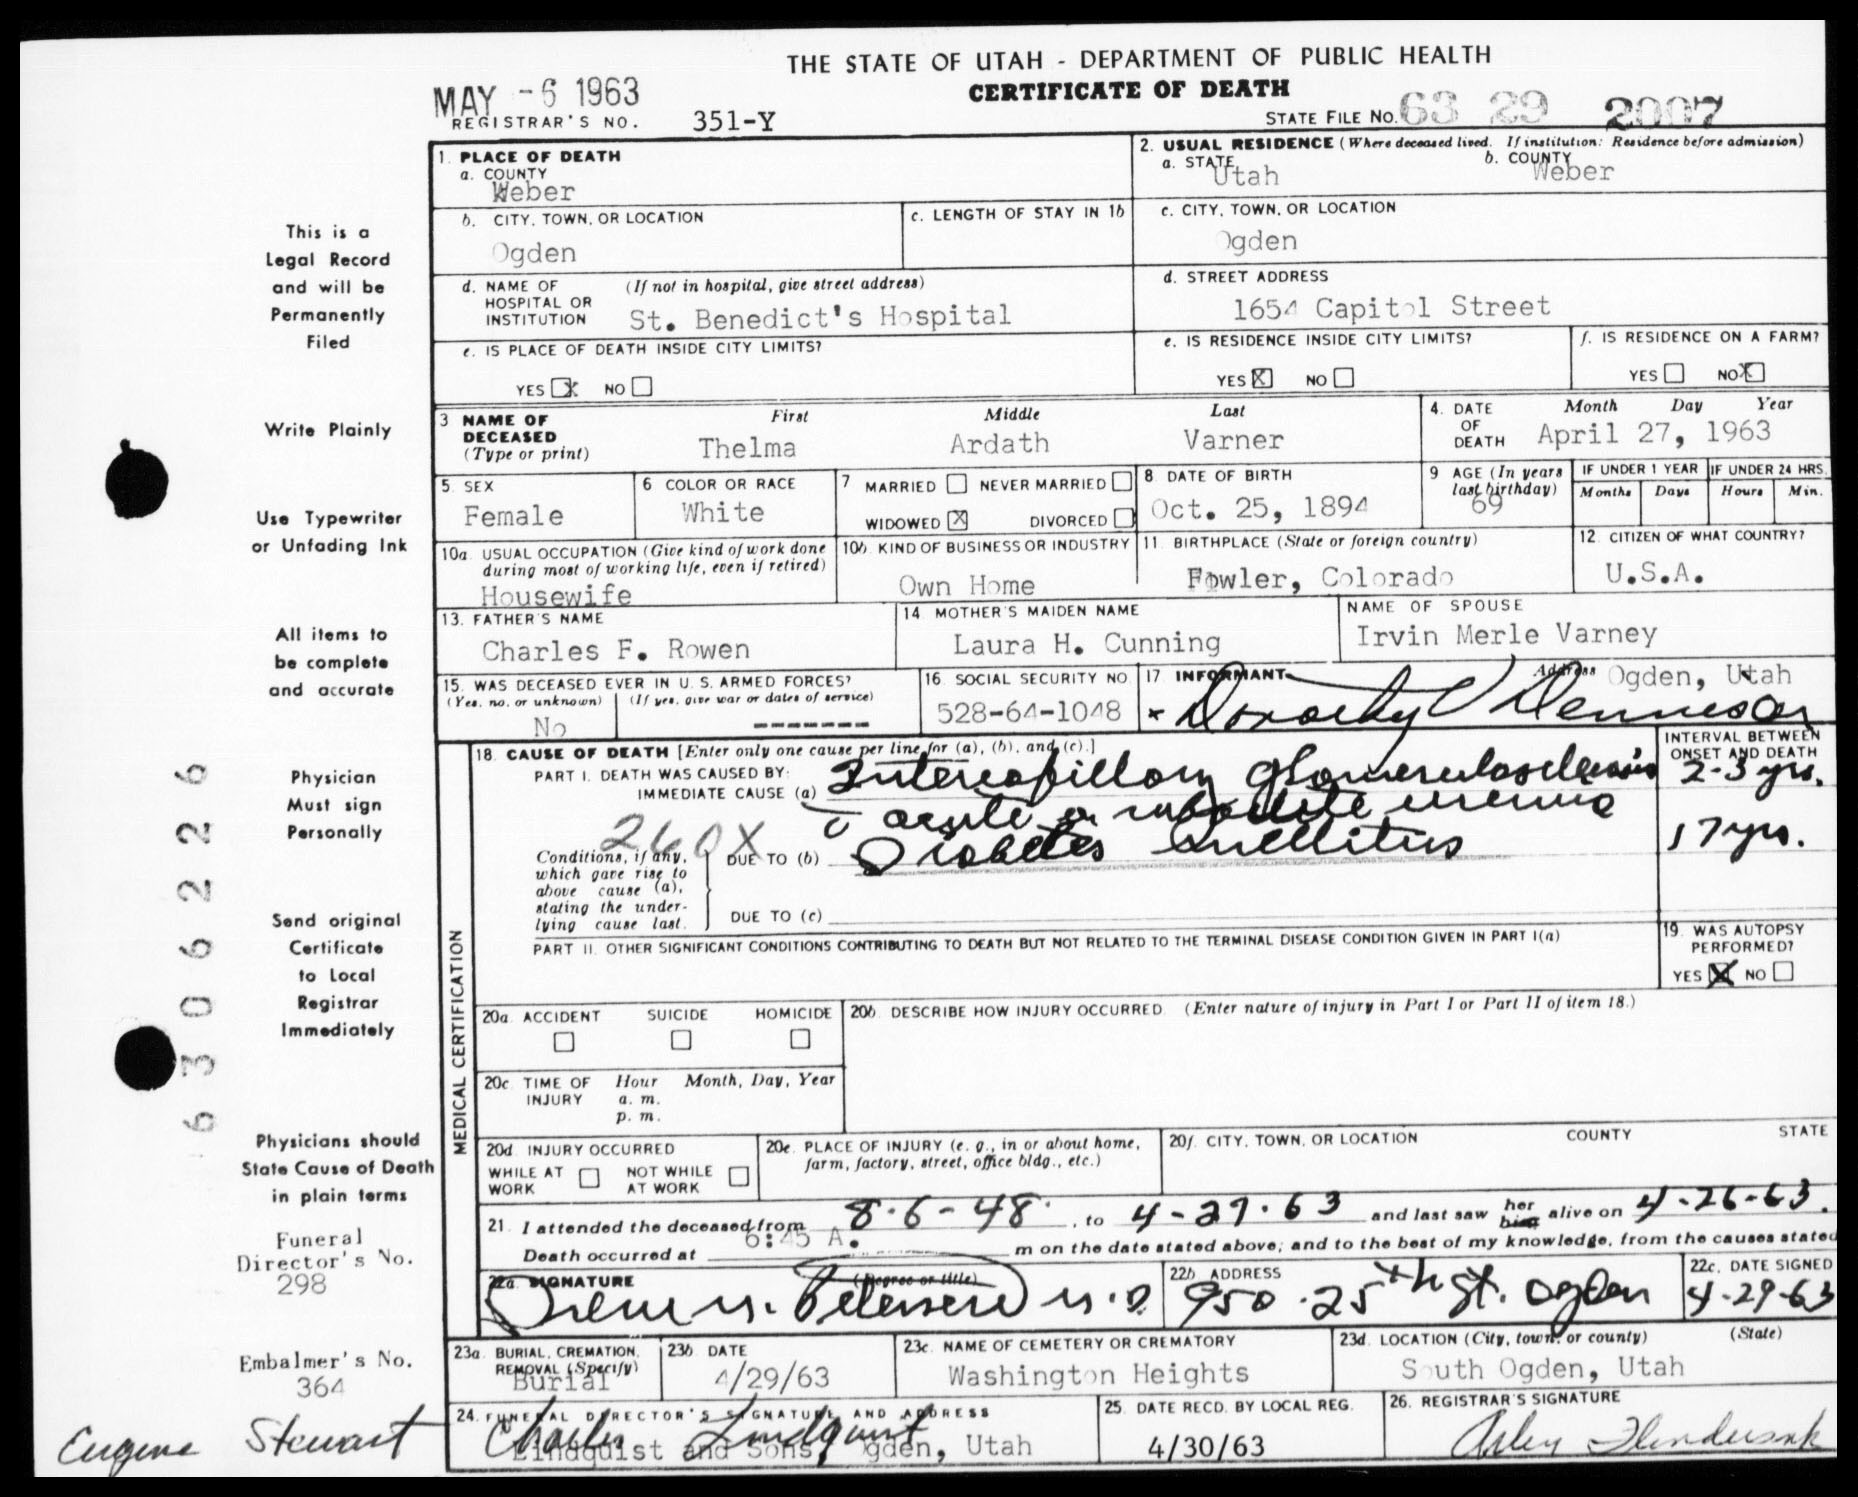 THE STATE OF UTAH - DEPARTMENT OF PUBLIC HEALTH
CERTIFICATE OF DEATH
MAY -6 1963
REGISTRAR'S NO. 351-Y
STATE FILE NO. 63 29 2007
1. PLACE OF DEATH
a. COUNTY
Weber
2. USUAL RESIDENCE (Where deceased lived. If institution: Residence before admission)
a. STATE Utah b. COUNTY Weber
b. CITY, TOWN, OR LOCATION
Ogden
c. LENGTH OF STAY IN 1b
c. CITY, TOWN, OR LOCATION
Ogden
d. NAME OF HOSPITAL OR INSTITUTION (If not in hospital, give street address)
St. Benedict's Hospital
d. STREET ADDRESS
1654 Capitol Street
e. IS PLACE OF DEATH INSIDE CITY LIMITS?
YES X NO
e. IS RESIDENCE INSIDE CITY LIMITS?
YES X NO
f. IS RESIDENCE ON A FARM?
YES NO X
3 NAME OF DECEASED (Type or print)
First Middle Last
Thelma Ardath Varner
4. DATE OF DEATH Month Day Year
April 27, 1963
5. SEX
Female
6 COLOR OR RACE
White
7 MARRIED NEVER MARRIED
WIDOWED X DIVORCED
8 DATE OF BIRTH
Oct. 25, 1894
9 AGE (In years last birthday)
69
IF UNDER 1 YEAR IF UNDER 24 HRS.
Months Days Hours Min.
10a. USUAL OCCUPATION (Give kind of work done during most of working life, even if retired)
Housewife
10b. KIND OF BUSINESS OR INDUSTRY
Own Home
11. BIRTHPLACE (State or foreign country)
Fowler, Colorado
12. CITIZEN OF WHAT COUNTRY?
U.S.A.
13. FATHER'S NAME
Charles F. Rowen
14 MOTHER'S MAIDEN NAME
Laura H. Cunning
NAME OF SPOUSE
Irvin Merle Varney
15. WAS DECEASED EVER IN U. S. ARMED FORCES?
(Yes, no, or unknown) (If yes, give war or dates of service)
No -------
16. SOCIAL SECURITY NO.
528-64-1048
17. INFORMANT Address Ogden, Utah
x Dorothy V Dennison
MEDICAL CERTIFICATION
18. CAUSE OF DEATH [Enter only one cause per line for (a), (b), and (c).]
INTERVAL BETWEEN ONSET AND DEATH
PART I. DEATH WAS CAUSED BY:
IMMEDIATE CAUSE (a) Intercapillary glomerulosclerosis 2-3 yrs.
c acute or subacute uremia
260X
Conditions, if any, which gave rise to above cause (a), stating the underlying cause last.
DUE TO (b) Diabetes Mellitus 17 yrs.
DUE TO (c)
PART II. OTHER SIGNIFICANT CONDITIONS CONTRIBUTING TO DEATH BUT NOT RELATED TO THE TERMINAL DISEASE CONDITION GIVEN IN PART I(a)
19. WAS AUTOPSY PERFORMED?
YES X NO
20a. ACCIDENT SUICIDE HOMICIDE
20b. DESCRIBE HOW INJURY OCCURRED. (Enter nature of injury in Part I or Part II of item 18.)
20c. TIME OF INJURY Hour Month, Day, Year
a. m.
p. m.
20d. INJURY OCCURRED
WHILE AT WORK NOT WHILE AT WORK
20e. PLACE OF INJURY (e. g., in or about home, farm, factory, street, office bldg., etc.)
20f. CITY, TOWN, OR LOCATION COUNTY STATE
21. I attended the deceased from 8-6-48, to 4-27-63 and last saw her him alive on 4-26-63.
Death occurred at 6:45 A. m on the date stated above; and to the best of my knowledge, from the causes stated
22a. SIGNATURE (Degree or title)
M. Petersen M.D.
22b. ADDRESS
950 - 25th St. Ogden
22c. DATE SIGNED
4-29-63
23a. BURIAL, CREMATION, REMOVAL (Specify)
Burial
23b. DATE
4/29/63
23c. NAME OF CEMETERY OR CREMATORY
Washington Heights
23d. LOCATION (City, town, or county) (State)
South Ogden, Utah
24. FUNERAL DIRECTOR'S SIGNATURE AND ADDRESS
Charles Lindquist
Lindquist and Sons, Ogden, Utah
25. DATE RECD. BY LOCAL REG.
4/30/63
26. REGISTRAR'S SIGNATURE
This is a
Legal Record
and will be
Permanently
Filed
Write Plainly
Use Typewriter
or Unfading Ink
All items to
be complete
and accurate
Physician
Must sign
Personally
Send original
Certificate
to Local
Registrar
Immediately
Physicians should
State Cause of Death
in plain terms
Funeral
Director's No.
298
Embalmer's No.
364
Eugene Stewart
6306226